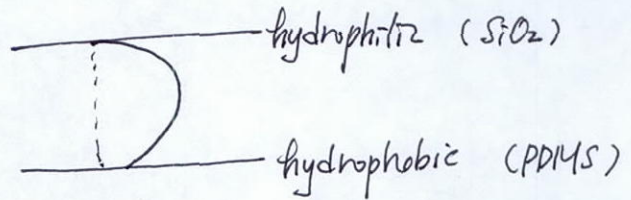 hydrophilic (SiO₂)
hydrophobic (PDMS)